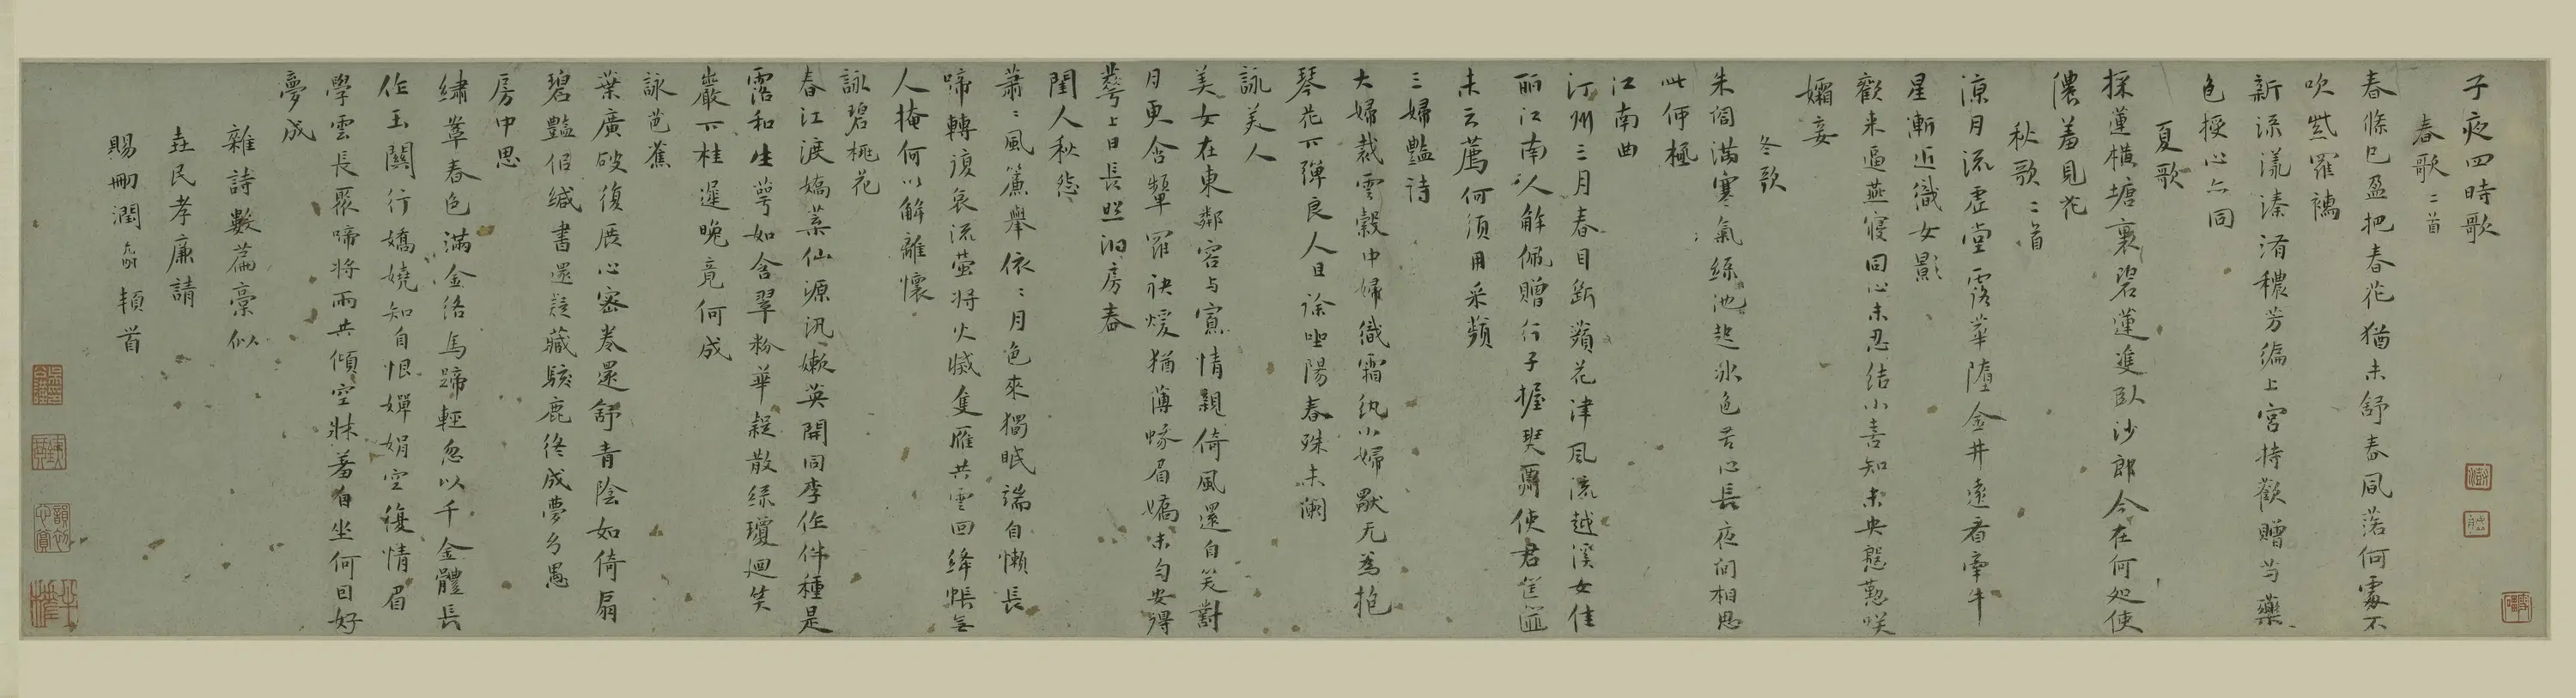 子夜四時歌
春歌二首
春條已盈把春花猶未舒春風落何處不
吹紫羅襦
新流漾溱洧穠芳徧上宮持歡贈芍藥
色授心亦同
夏歌
採蓮橫塘裏碧蓮進臥沙郎今在何処使
儂羞見花
秋歌二首
涼月流虛堂露華墮金井遠看牽牛
星漸近織女影
歡来逼燕寢回心未忍結小喜知未央慇懃咲
孀妾
冬歌
朱閤滿寒氣綠池起冰色苦心長夜間相思
此何極
江南曲
汀州三月春目斷蘋花津風流越溪女佳
麗江南人解佩贈行子握
使君筐
未云薦何須用采蘋
三婦豔詩
大婦裁雲縠中婦織霜紈小婦最无為抱
琴花下彈良人且徐坐陽春殊未闌
詠美人
美女在東鄰容与寡情親倚風還自笑對
月更含顰羅袂煖猶薄蛾眉嬌未勻安得
蕚上日長照洞房春
閨人秋怨
蕭〻風簾舉依〻月色來獨眠端自懶長
啼轉復哀流螢將火滅隻雁共雲回絳帳無
人掩何以解離懷
詠碧桃花
春江渡嬌蘂仙源汎嫩英開同李作伴種是
露和生萼如含翠粉華疑散綠瓊廻笑
巖下桂遲晚竟何成
詠芭蕉
葉廣破復展心密卷還舒青陰如倚扇
碧豔佀緘書還疑藏駭鹿終成夢兮愚
房中思
繡羣春色滿金絡馬蹄輕忽以千金體長
作玉關行嬌嬈知自恨嬋娟空復情眉
學雲長聚啼将雨共傾空牀羞自坐何曰好
夢成
雜詩數篇稾似
垚民孝廉請
賜刪潤 頓首